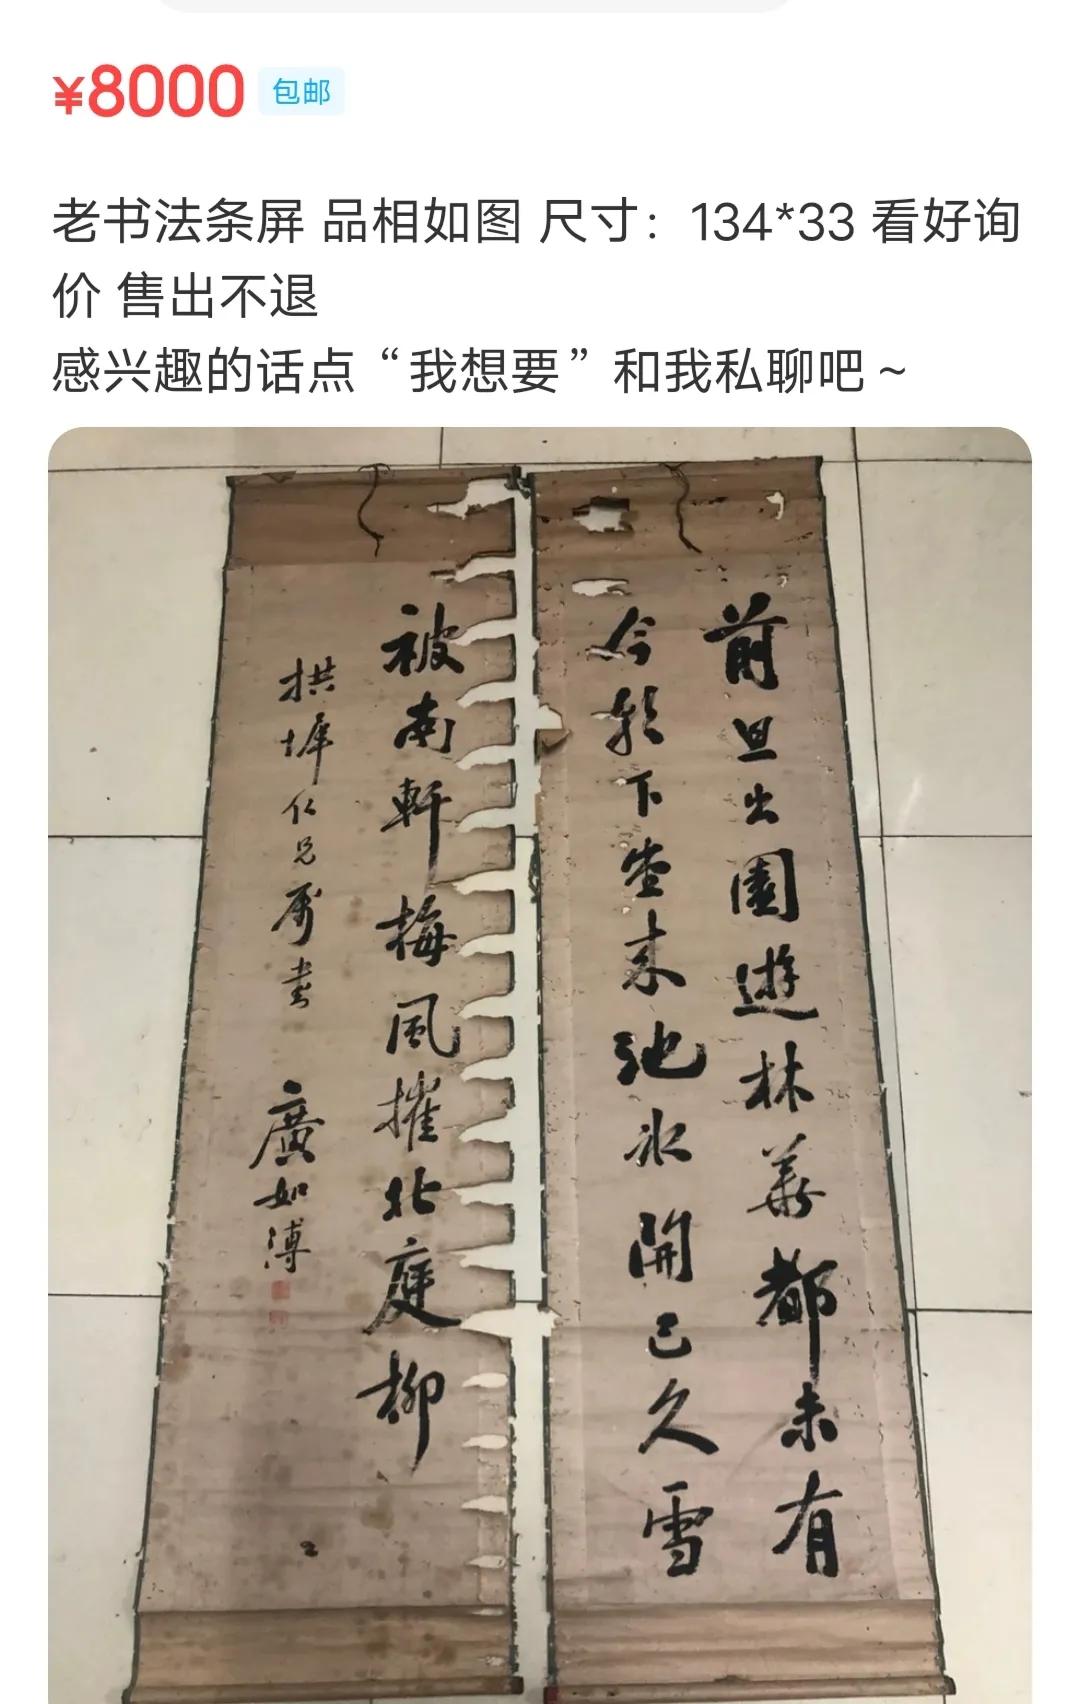 ¥8000 包邮
老书法条屏 品相如图 尺寸：134*33 看好询
价 售出不退
感兴趣的话点“我想要”和我私聊吧～
前旦出園遊林華都未有
今朝下堂来池冰開已久雪
被南軒梅風摧北庭柳
拱墀仁兄属書 廣如溥